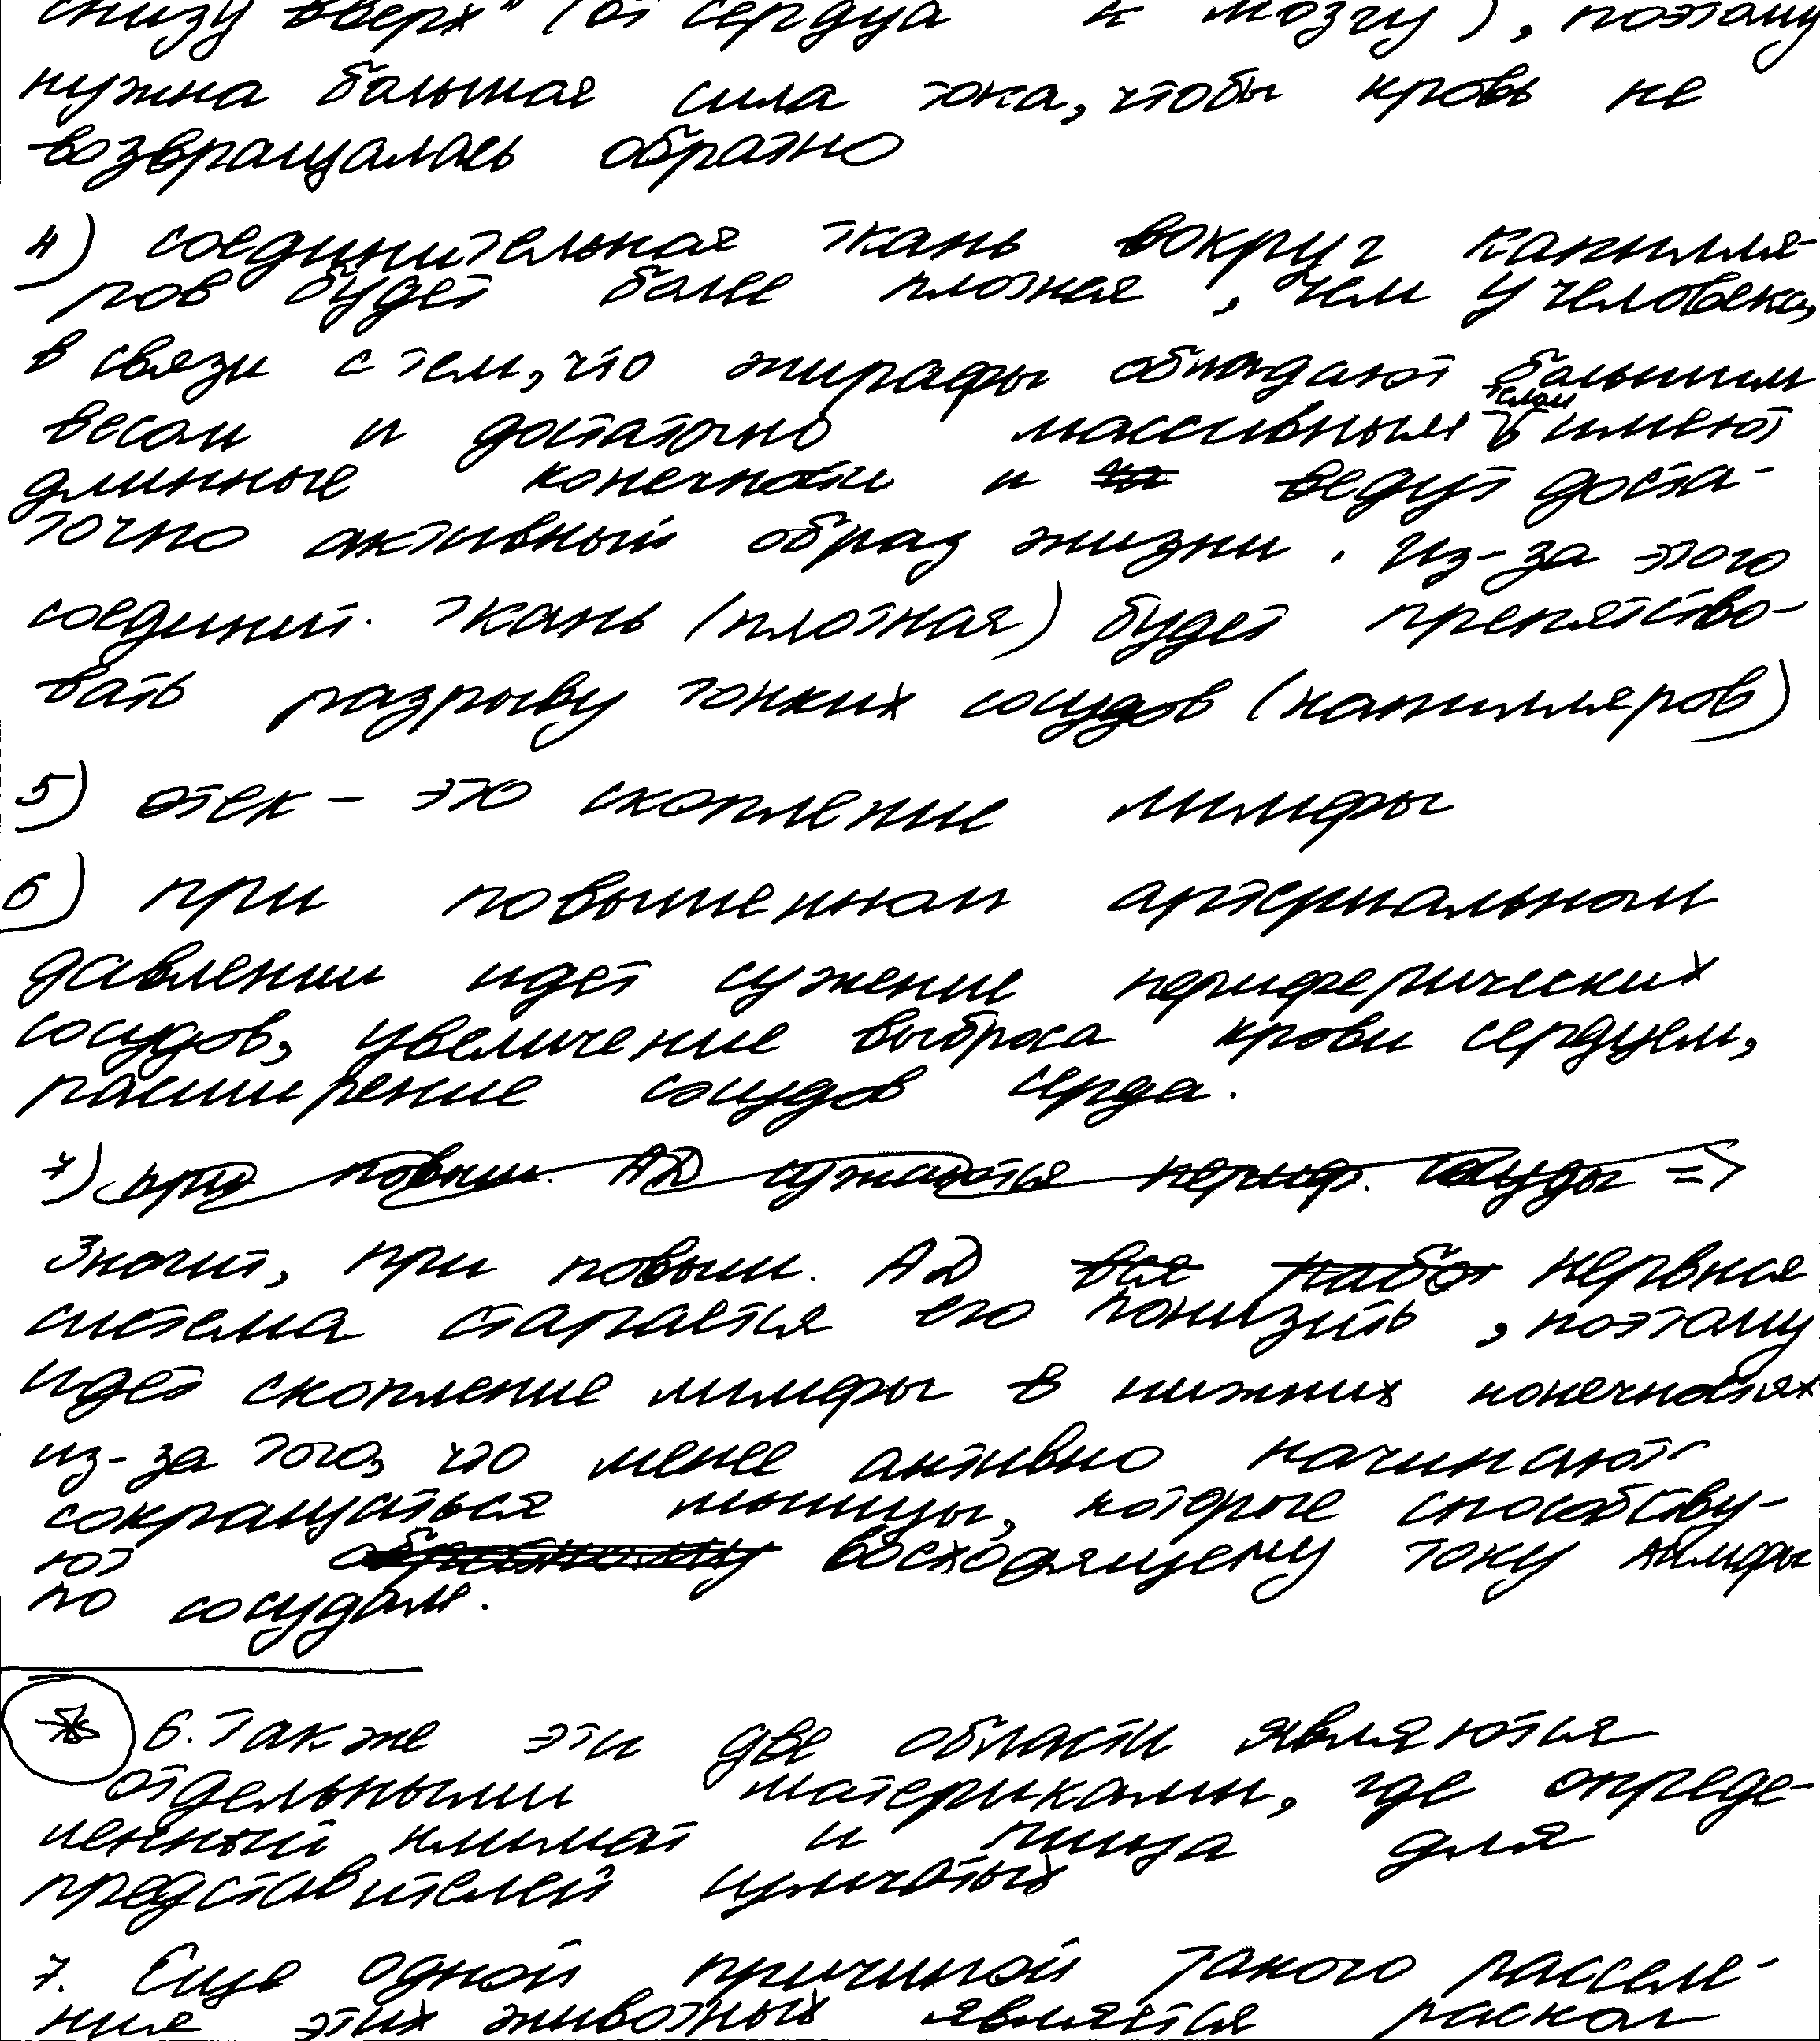 снизу вверх" (от сердца к мозгу), поэтому
нужна большая сила тока, чтобы кровь не
возвращалась обратно
4) соединительная ткань вокруг капилля-
ров будет более плотная, чем у человека,
в связи с тем, что жирафы обладают большим
весом и достаточно массивным телом имеют
длинные конечности и ведут доста-
точно активный образ жизни. Из-за этого
соединит. ткань (плотная) будет препятство-
вать разрыву тонких сосудов (капилляров)
5) отек - это скопление лимфы
6) при повышенном артериальном
давлении идет сужение периферических
сосудов, увеличение выброса крови сердцем,
расширение сосудов серда.
7) при повыш. АД сужаются периф. сосуды =>
Значит, при повыш. АД все нервная
система старается его понизить, поэтому
идет скопление лимфы в нижних конечностях
из-за того, что менее активно начинают
сокращаться мышцы, которые способству-
ют восходящему току лимфы
по сосудам.
6. Также эти две области являются
отдельными материками, где опреде-
ленный климат и пища для
представителей
7. Еще одной причиной такого расселе-
ния этих животных является раскол